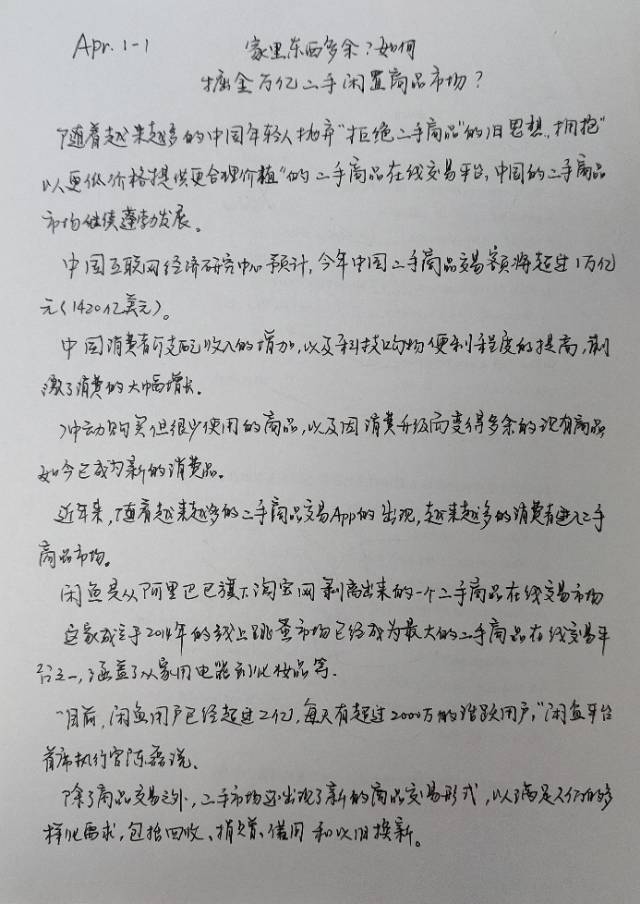 Apr. 1-1
家里东西多余？如何
掘金万亿二手闲置商品市场？
随着越来越多的中国年轻人抛弃"拒绝二手商品"的旧思想，拥抱"
以更低价格提供更合理价值"的二手商品在线交易平台，中国的二手商品
市场继续蓬勃发展。
中国互联网经济研究中心预计，今年中国二手商品交易额将超过1万亿
元（1420亿美元）。
中国消费者可支配收入的增加，以及科技购物便利程度的提高，刺
激了消费的大幅增长。
冲动购买但很少使用的商品，以及因消费升级而变得多余的现有商品
如今已成为新的消费品。
近年来，随着越来越多的二手商品交易App的出现，越来越多的消费者进入二手
商品市场。
闲鱼是从阿里巴巴旗下淘宝网剥离出来的一个二手商品在线交易市场
这家成立于2014年的线上跳蚤市场已经成为最大的二手商品在线交易平
台之一，涵盖了从家用电器到化妆品等.
"目前，闲鱼用户已经超过2亿，每天有超过2000万的活跃用户，"闲鱼平台
首席执行官陈磊说。
除了商品交易之外，二手市场还出现了新的商品交易形式，以满足人们的多
样化需求，包括回收、捐赠、借用和以旧换新。